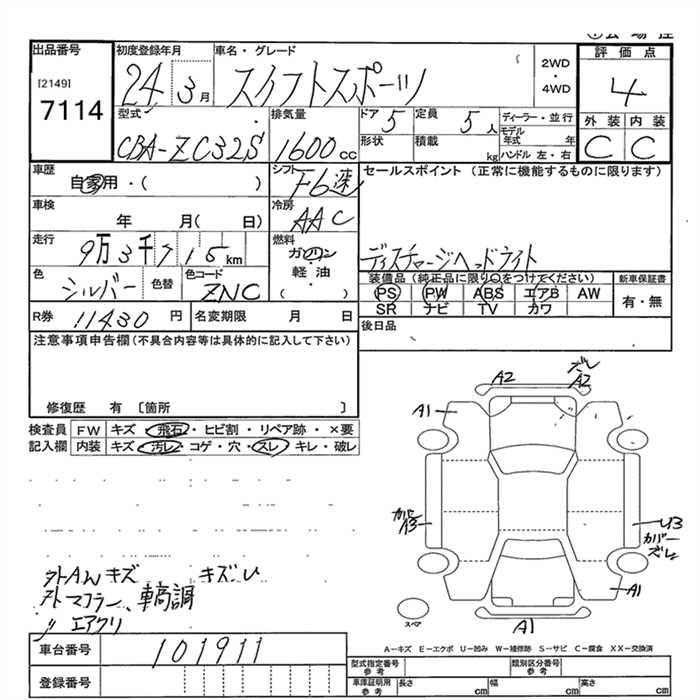 出品番号
[2149]
7114
初度登録年月
24 3月
車名・グレード
スイフトスポーツ
2WD
・
4WD
評価点
4
外装 内装
C C
型式
CBA-ZC32S
排気量
1600cc
ドア 5
定員 5人
形状
積載 kg
ディーラー・並行
モデル年式 年
ハンドル 左・右
車歴
自家用・( )
シフト
F6速
冷房
AAC
セールスポイント (正常に機能するものに限ります)
ディスチャージヘッドライト
車検
年 月( 日)
走行
9万3千715km
燃料
ガソリン
軽油
( ・ )
色
シルバー
色替
色コード
ZNC
装備品 (純正品に限り○をつけてください)
PS PW ABS エアB AW
SR ナビ TV カワ
新車保証書
有・無
後日品
R券 11430円
名変期限 月 日
注意事項申告欄(不具合内容等は具体的に記入して下さい)
修復歴 有 〔箇所 〕
検査員 FW キズ・飛石・ヒビ割・リペア跡・×要
記入欄 内装 キズ・汚レ・コゲ・穴・スレ・キレ・破レ
外AWキズ キズU
外マフラー、車高調
〃 エアクリ
車台番号
101911
登録番号
A2
ズレ
A2
A1
カバー
A3
U3
カバー
ズレ
A1
スペア
A1
A-キズ E-エクボ U-凹み W-補修跡 S-サビ C-腐食 XX-交換済
型式指定番号
参考
類別区分番号
参考
車庫証明用
参考
長さ cm
幅 cm
高さ cm